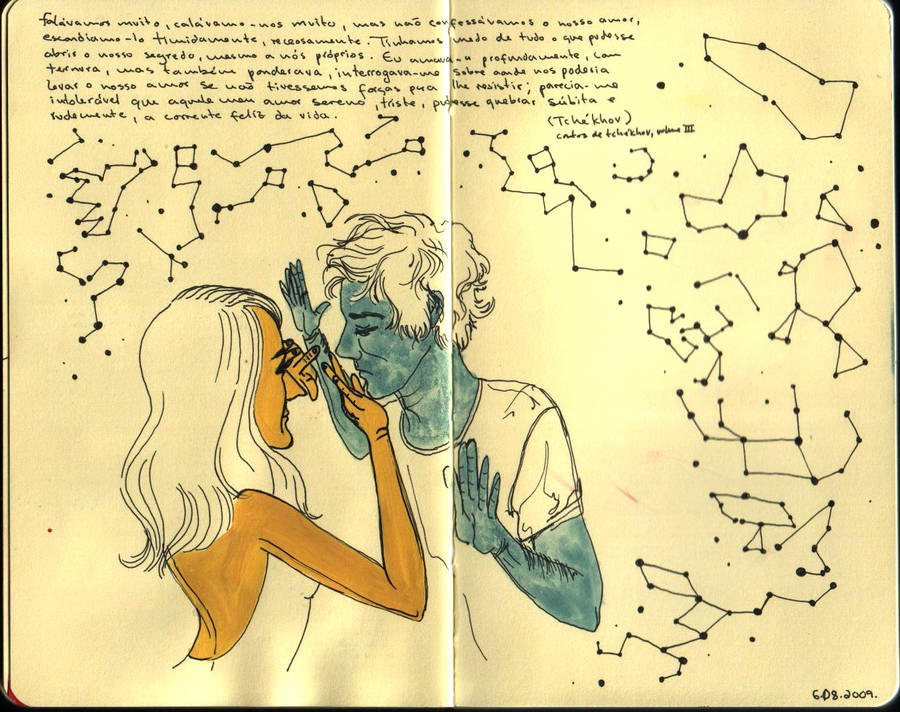 Falávamos muito, calávamo-nos muito, mas não confessávamos o nosso amor,
escondíamo-lo timidamente, receosamente. Tínhamos medo de tudo o que pudesse
abrir o nosso segredo, mesmo a nós próprios. Eu amava-a profundamente, com
ternura, mas também ponderava, interrogava-me sobre aonde nos poderia
levar o nosso amor se não tivéssemos forças para lhe resistir; parecia-me
intolerável que aquele meu amor sereno, triste, pudesse quebrar súbita e
rudemente, a corrente feliz da vida.
(Tchékhov)
contos de tchékhov, volume III
6.08.2009.